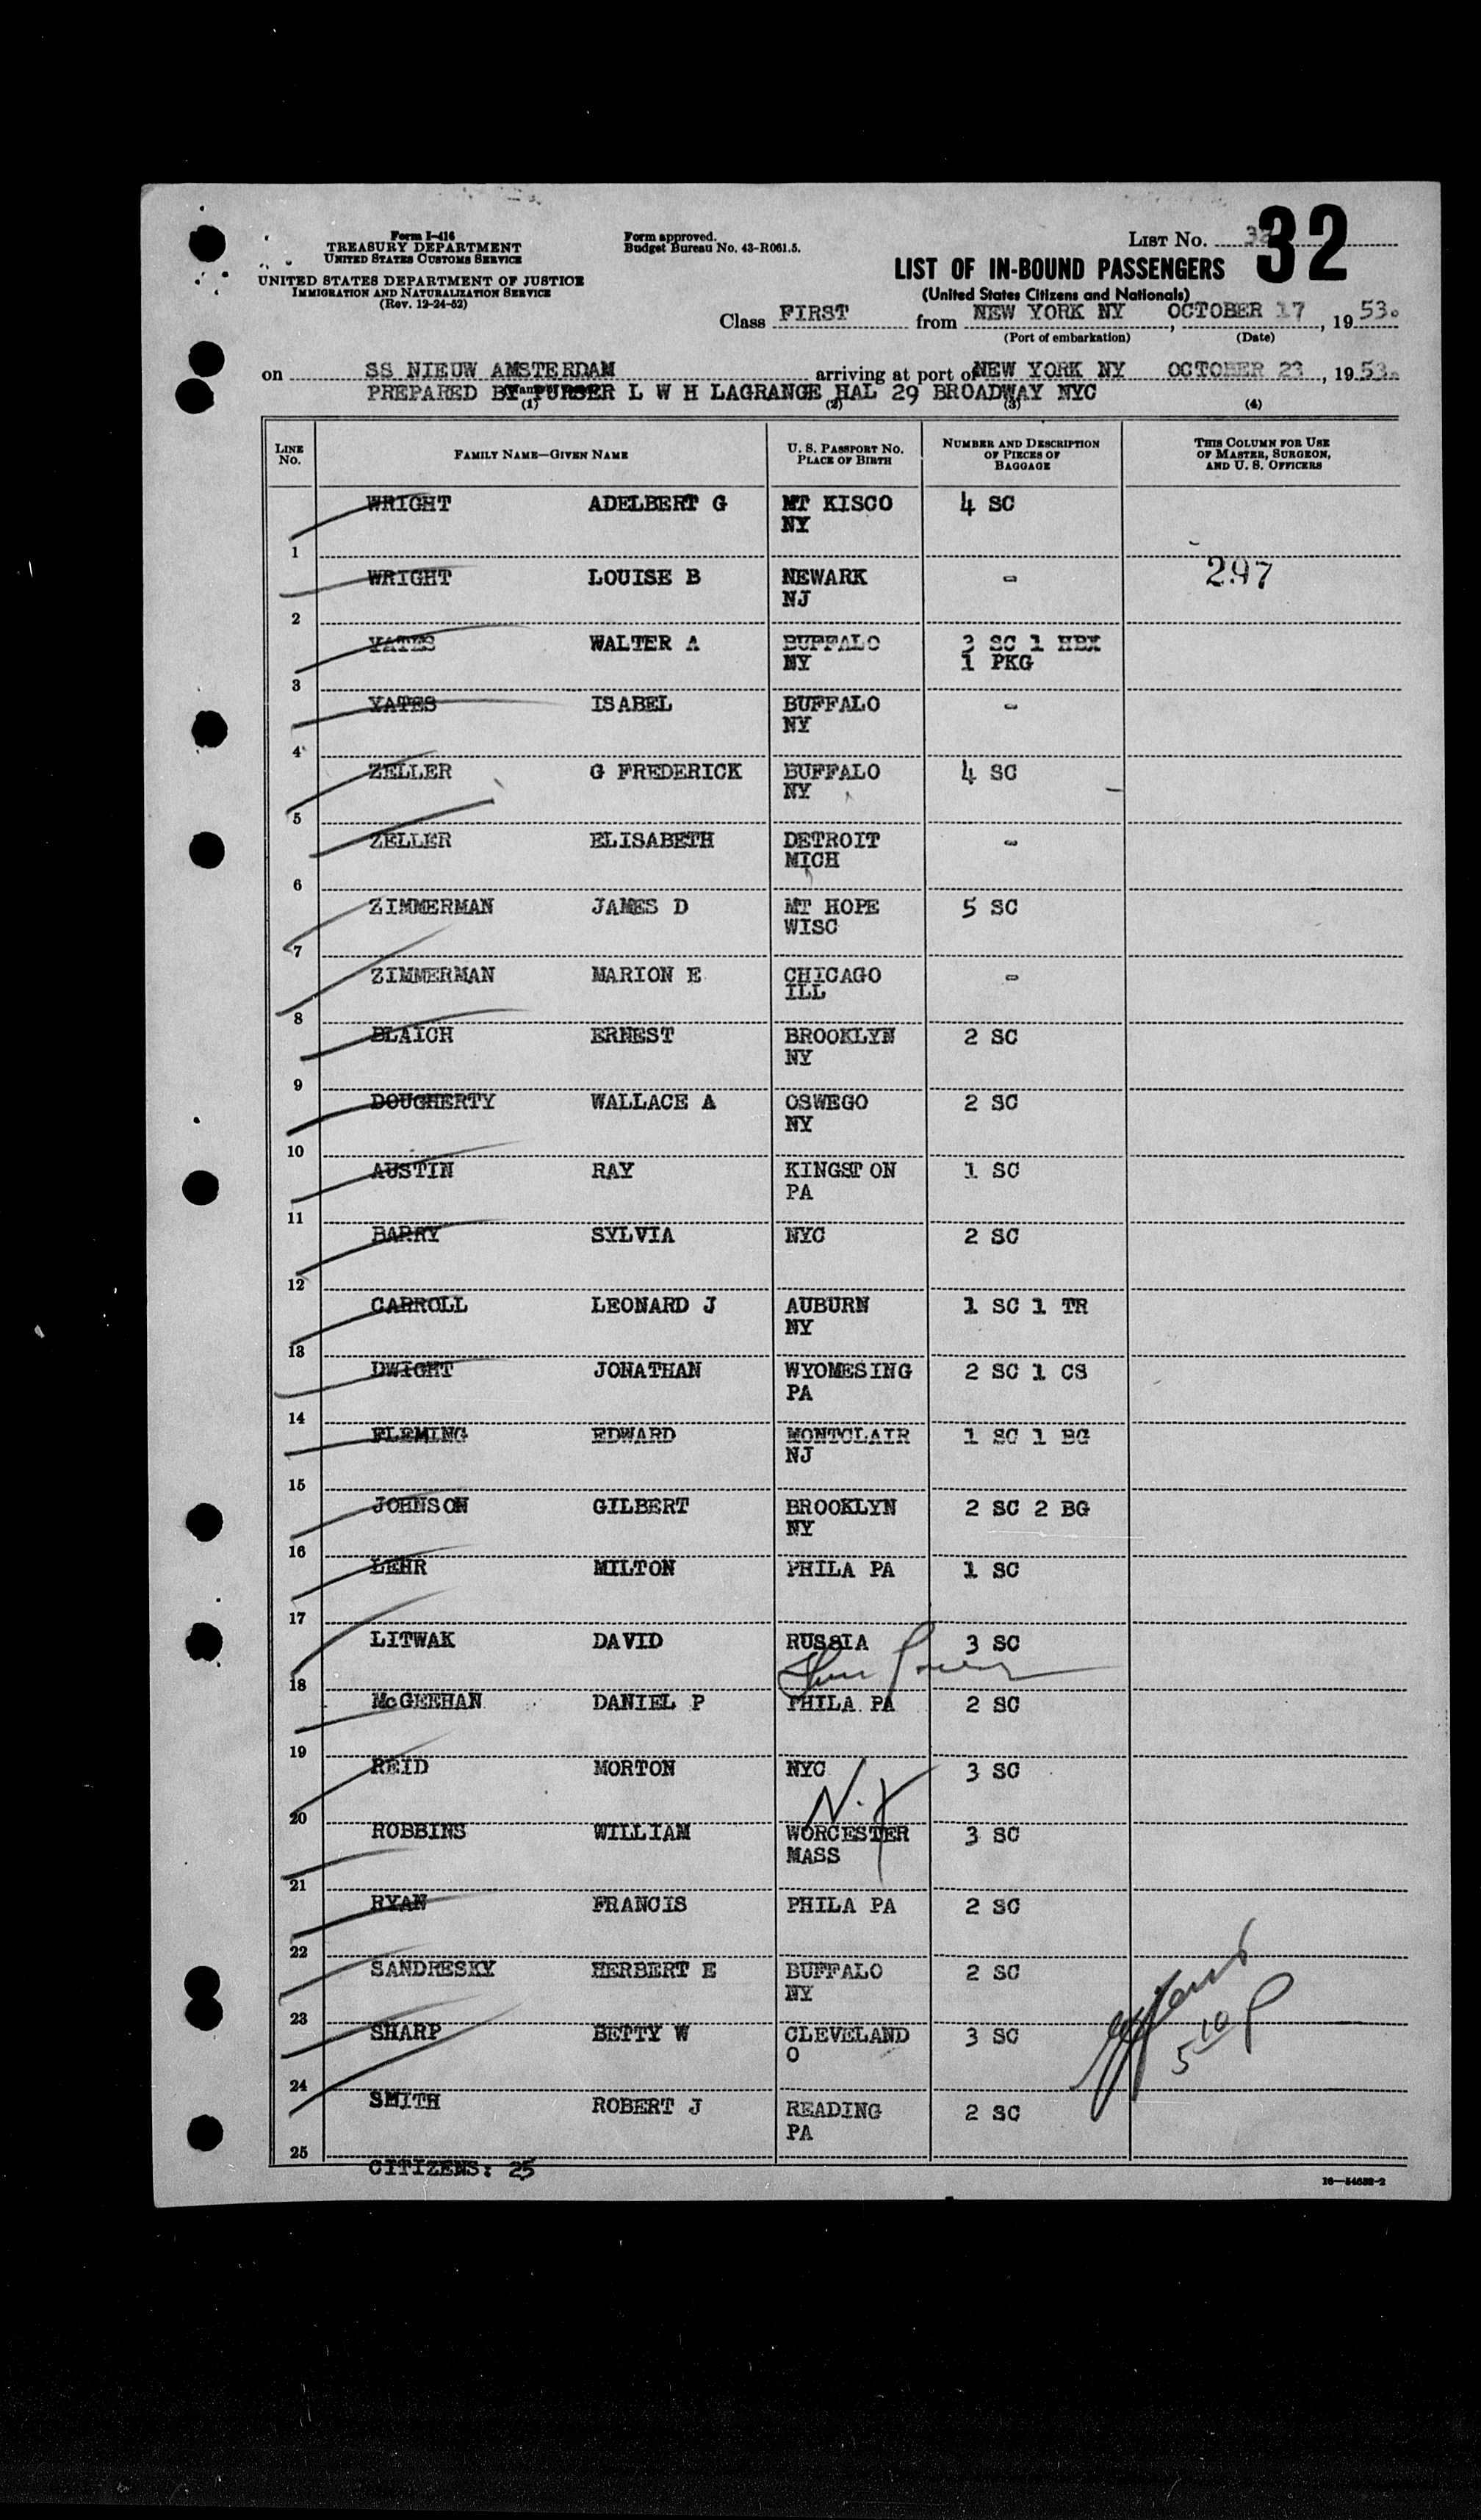 Form I-416
TREASURY DEPARTMENT
UNITED STATES CUSTOMS SERVICE
UNITED STATES DEPARTMENT OF JUSTICE
IMMIGRATION AND NATURALIZATION SERVICE
(Rev. 12-24-52)
Form approved.
Budget Bureau No. 43-R061.5.
LIST No. 32
32
LIST OF IN-BOUND PASSENGERS
(United States Citizens and Nationals)
Class FIRST from NEW YORK NY, OCTOBER 17, 1953.
(Port of embarkation) (Date)
on SS NIEUW AMSTERDAM arriving at port of NEW YORK NY OCTOBER 23, 1953.
PREPARED BY PURSER L W H LAGRANGE HAL 29 BROADWAY NYC
(1) (2) (3) (4)
LINE No. FAMILY NAME—GIVEN NAME U. S. PASSPORT No. PLACE OF BIRTH NUMBER AND DESCRIPTION OF PIECES OF BAGGAGE THIS COLUMN FOR USE OF MASTER, SURGEON, AND U. S. OFFICERS
WRIGHT ADELBERT G MT KISCO 4 SC
NY
1
WRIGHT LOUISE B NEWARK - 297
NJ
2
YATES WALTER A BUFFALO 3 SC 1 HBX
NY 1 PKG
3
YATES ISABEL BUFFALO -
NY
4
ZELLER G FREDERICK BUFFALO 4 SC
NY
5
ZELLER ELISABETH DETROIT -
MICH
6
ZIMMERMAN JAMES D MT HOPE 5 SC
WISC
7
ZIMMERMAN MARION E CHICAGO -
ILL
8
BLAICH ERNEST BROOKLYN 2 SC
NY
9
DOUGHERTY WALLACE A OSWEGO 2 SC
NY
10
AUSTIN RAY KINGSTON 1 SC
PA
11
BARRY SYLVIA NYC 2 SC
12
CARROLL LEONARD J AUBURN 1 SC 1 TR
NY
13
DWIGHT JONATHAN WYOMESING 2 SC 1 CS
PA
14
FLEMING EDWARD MONTCLAIR 1 SC 1 BG
NJ
15
JOHNSON GILBERT BROOKLYN 2 SC 2 BG
NY
16
LEHR MILTON PHILA PA 1 SC
17
LITWAK DAVID RUSSIA 3 SC
18
McGEEHAN DANIEL P PHILA PA 2 SC
19
REID MORTON NYC 3 SC
N.Y
20
ROBBINS WILLIAM WORCESTER 3 SC
MASS
21
RYAN FRANCIS PHILA PA 2 SC
22
SANDRESKY HERBERT E BUFFALO 2 SC
NY
23
SHARP BETTY W CLEVELAND 3 SC
O
5 10 P
24
SMITH ROBERT J READING 2 SC
PA
25
CITIZENS: 25
16—54632-2